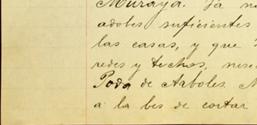 Muraya. Ya no
adobes suficientes
las casas, y que
redes y techos, nues
Poda de Arboles
a la bes de cortar